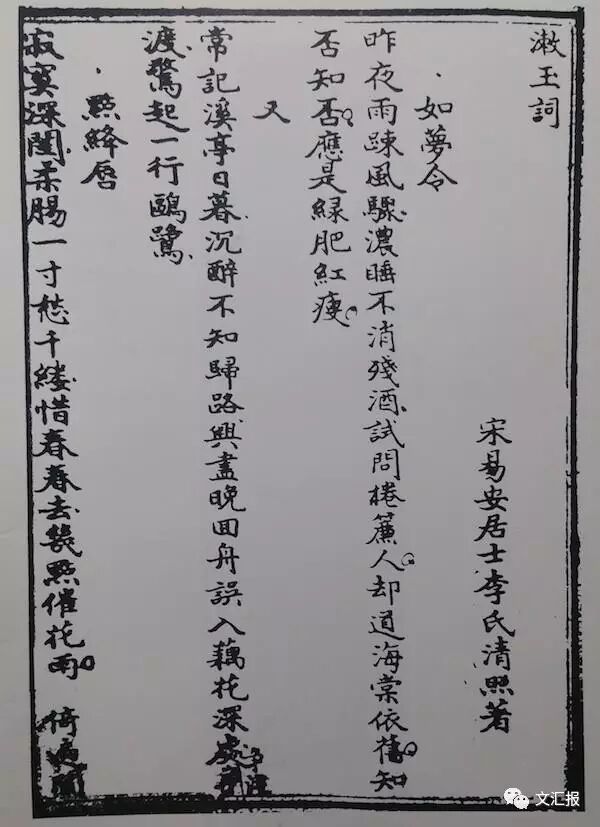 漱玉詞
宋易安居士李氏清照著
如夢令
昨夜雨踈風驟濃睡不消殘酒試問捲簾人却道海棠依舊知
否知否應是綠肥紅瘦
又
常記溪亭日暮沉醉不知歸路興盡晚回舟誤入藕花深處
渡驚起一行鷗鷺
點絳唇
寂寞深閨柔腸一寸愁千縷惜春春去幾點催花雨 倚遍闌
文汇报